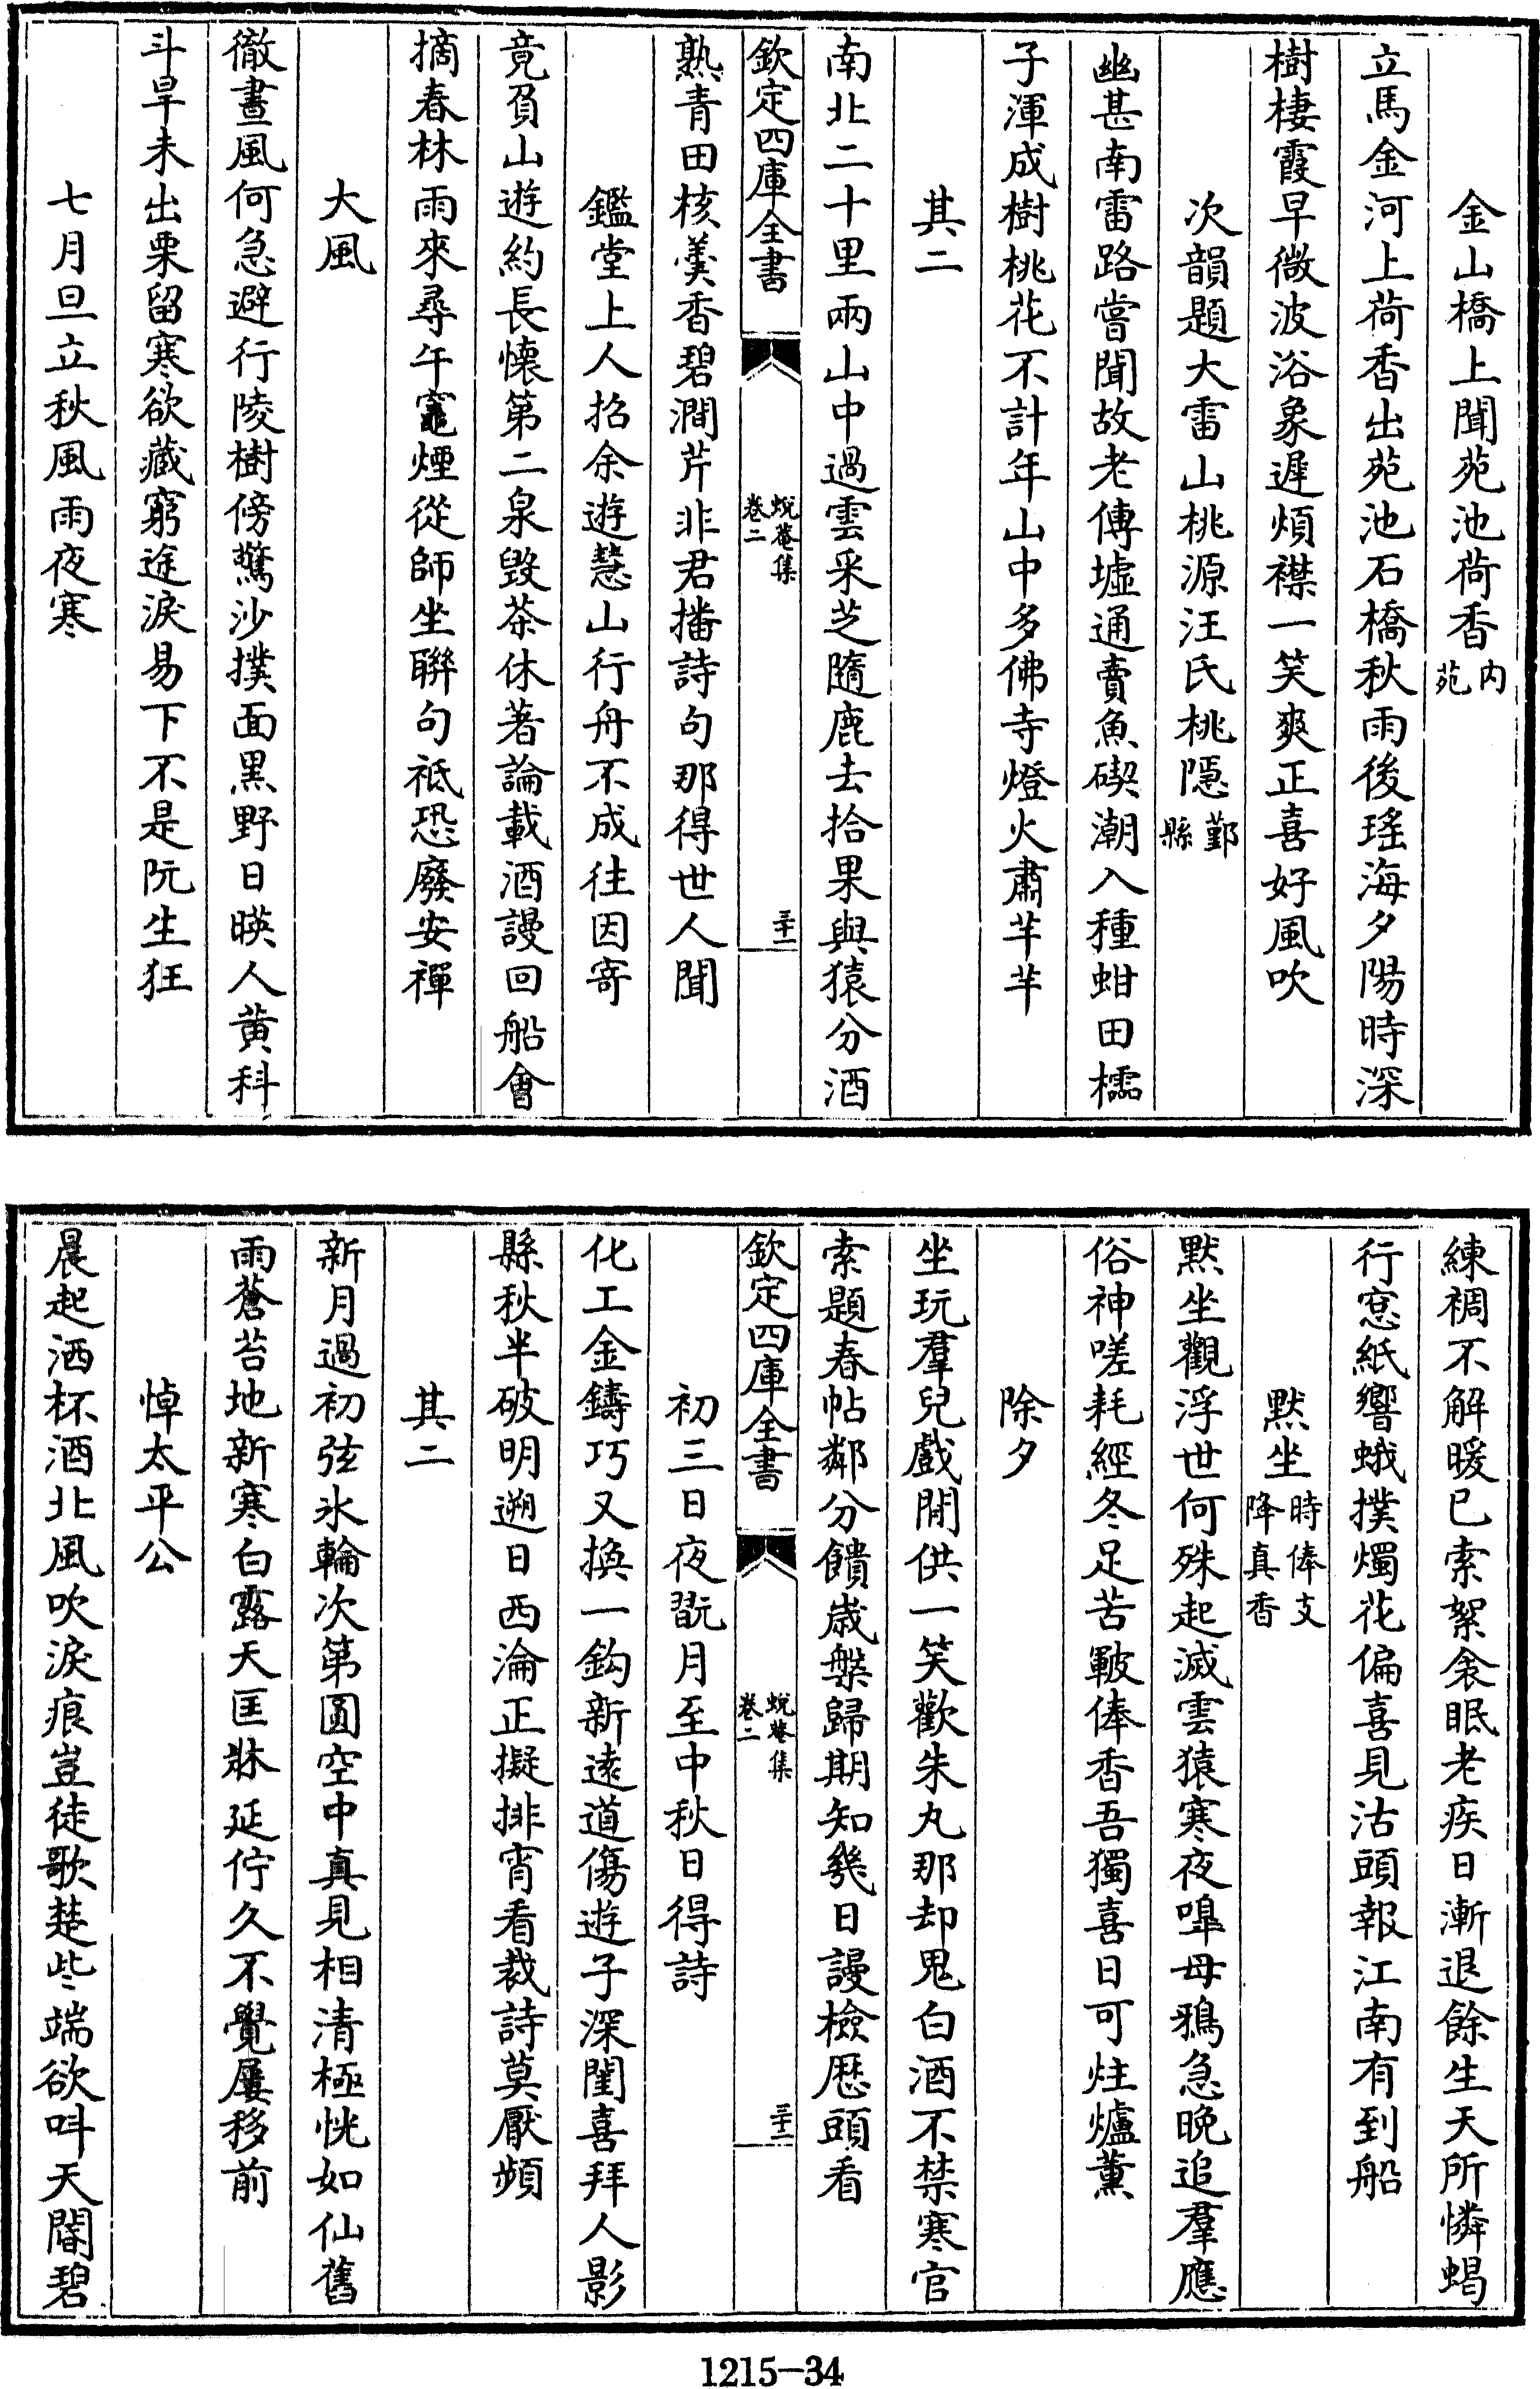 金山橋上聞苑池荷香内苑
立馬金河上荷香出苑池石橋秋雨後瑤海夕陽時深
樹棲霞早微波浴象遲煩襟一笑爽正喜好風吹
次韻題大雷山桃源汪氏桃隱鄞縣
幽甚南雷路嘗聞故老傳墟通賣魚碶潮入種蚶田檽
子渾成樹桃花不計年山中多佛寺燈火肅芊芊
其二
南北二十里兩山中過雲采芝隨鹿去拾果與猿分酒
欽定四庫全書
蛻菴集
卷二
三十一
熟青田核羮香碧澗芹非君播詩句那得世人聞
鑑堂上人招余遊慧山行舟不成往因寄
竟負山遊約長懷第二泉毁茶休著論載酒謾回船會
摘春林雨來尋午竈煙從師坐聨句祗恐廢安禪
大風
徹晝風何急避行陵樹傍驚沙撲面黒野日暎人黄科
斗旱未出栗留寒欲藏窮途淚易下不是阮生狂
七月旦立秋風雨夜寒
練裯不解暖已索絮衾眠老疾日漸退餘生天所憐蝎
行窓紙響蛾撲燭花偏喜見沽頭報江南有到船
默坐時俸支降真香
默坐觀浮世何殊起滅雲猿寒夜嘷母鴉急晩追羣應
俗神嗟耗經冬足苦皸俸香吾獨喜日可炷爐薰
除夕
坐玩羣兒戲閒供一笑歡朱丸那却鬼白酒不禁寒官
索題春帖鄰分饋歳槃歸期知幾日謾檢厯頭看
欽定四庫全書
蛻菴集
卷二
三十一
初三日夜翫月至中秋日得詩
化工金鑄巧又換一鈎新遠道傷遊子深閨喜拜人影
縣秋半破明遡日西淪正擬排宵看裁詩莫厭頻
其二
新月過初弦氷輪次第圓空中真見相清極恍如仙舊
雨蒼苔地新寒白露天匡牀延佇久不覺屢移前
悼太平公
晨起洒杯酒北風吹淚痕豈徒歌楚些端欲呌天閽碧
1215-34